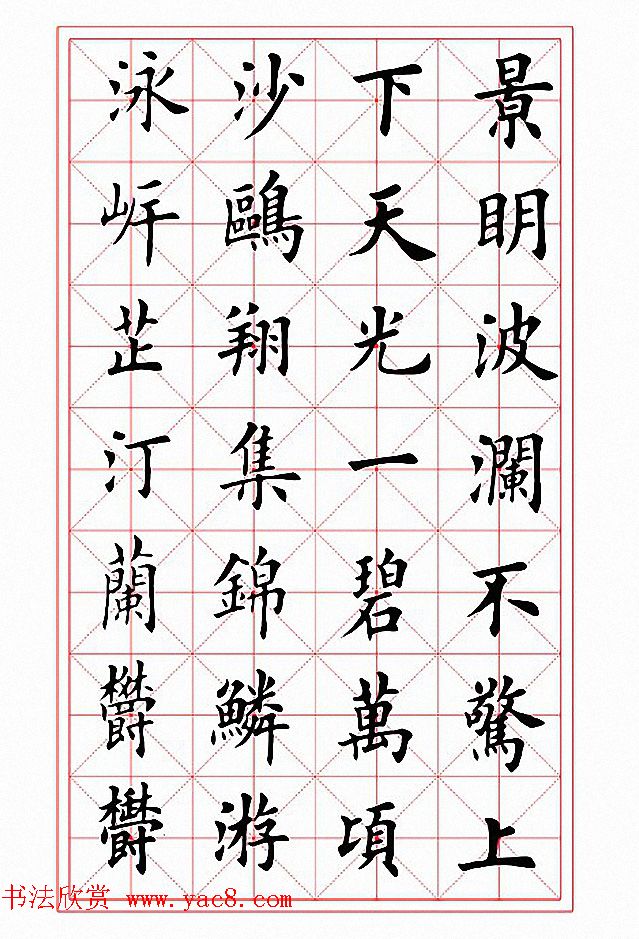 景明波瀾不驚上
下天光一碧萬頃
沙鷗翔集錦鱗游
泳岸芷汀蘭欝欝
书法欣赏 www.yac8.com